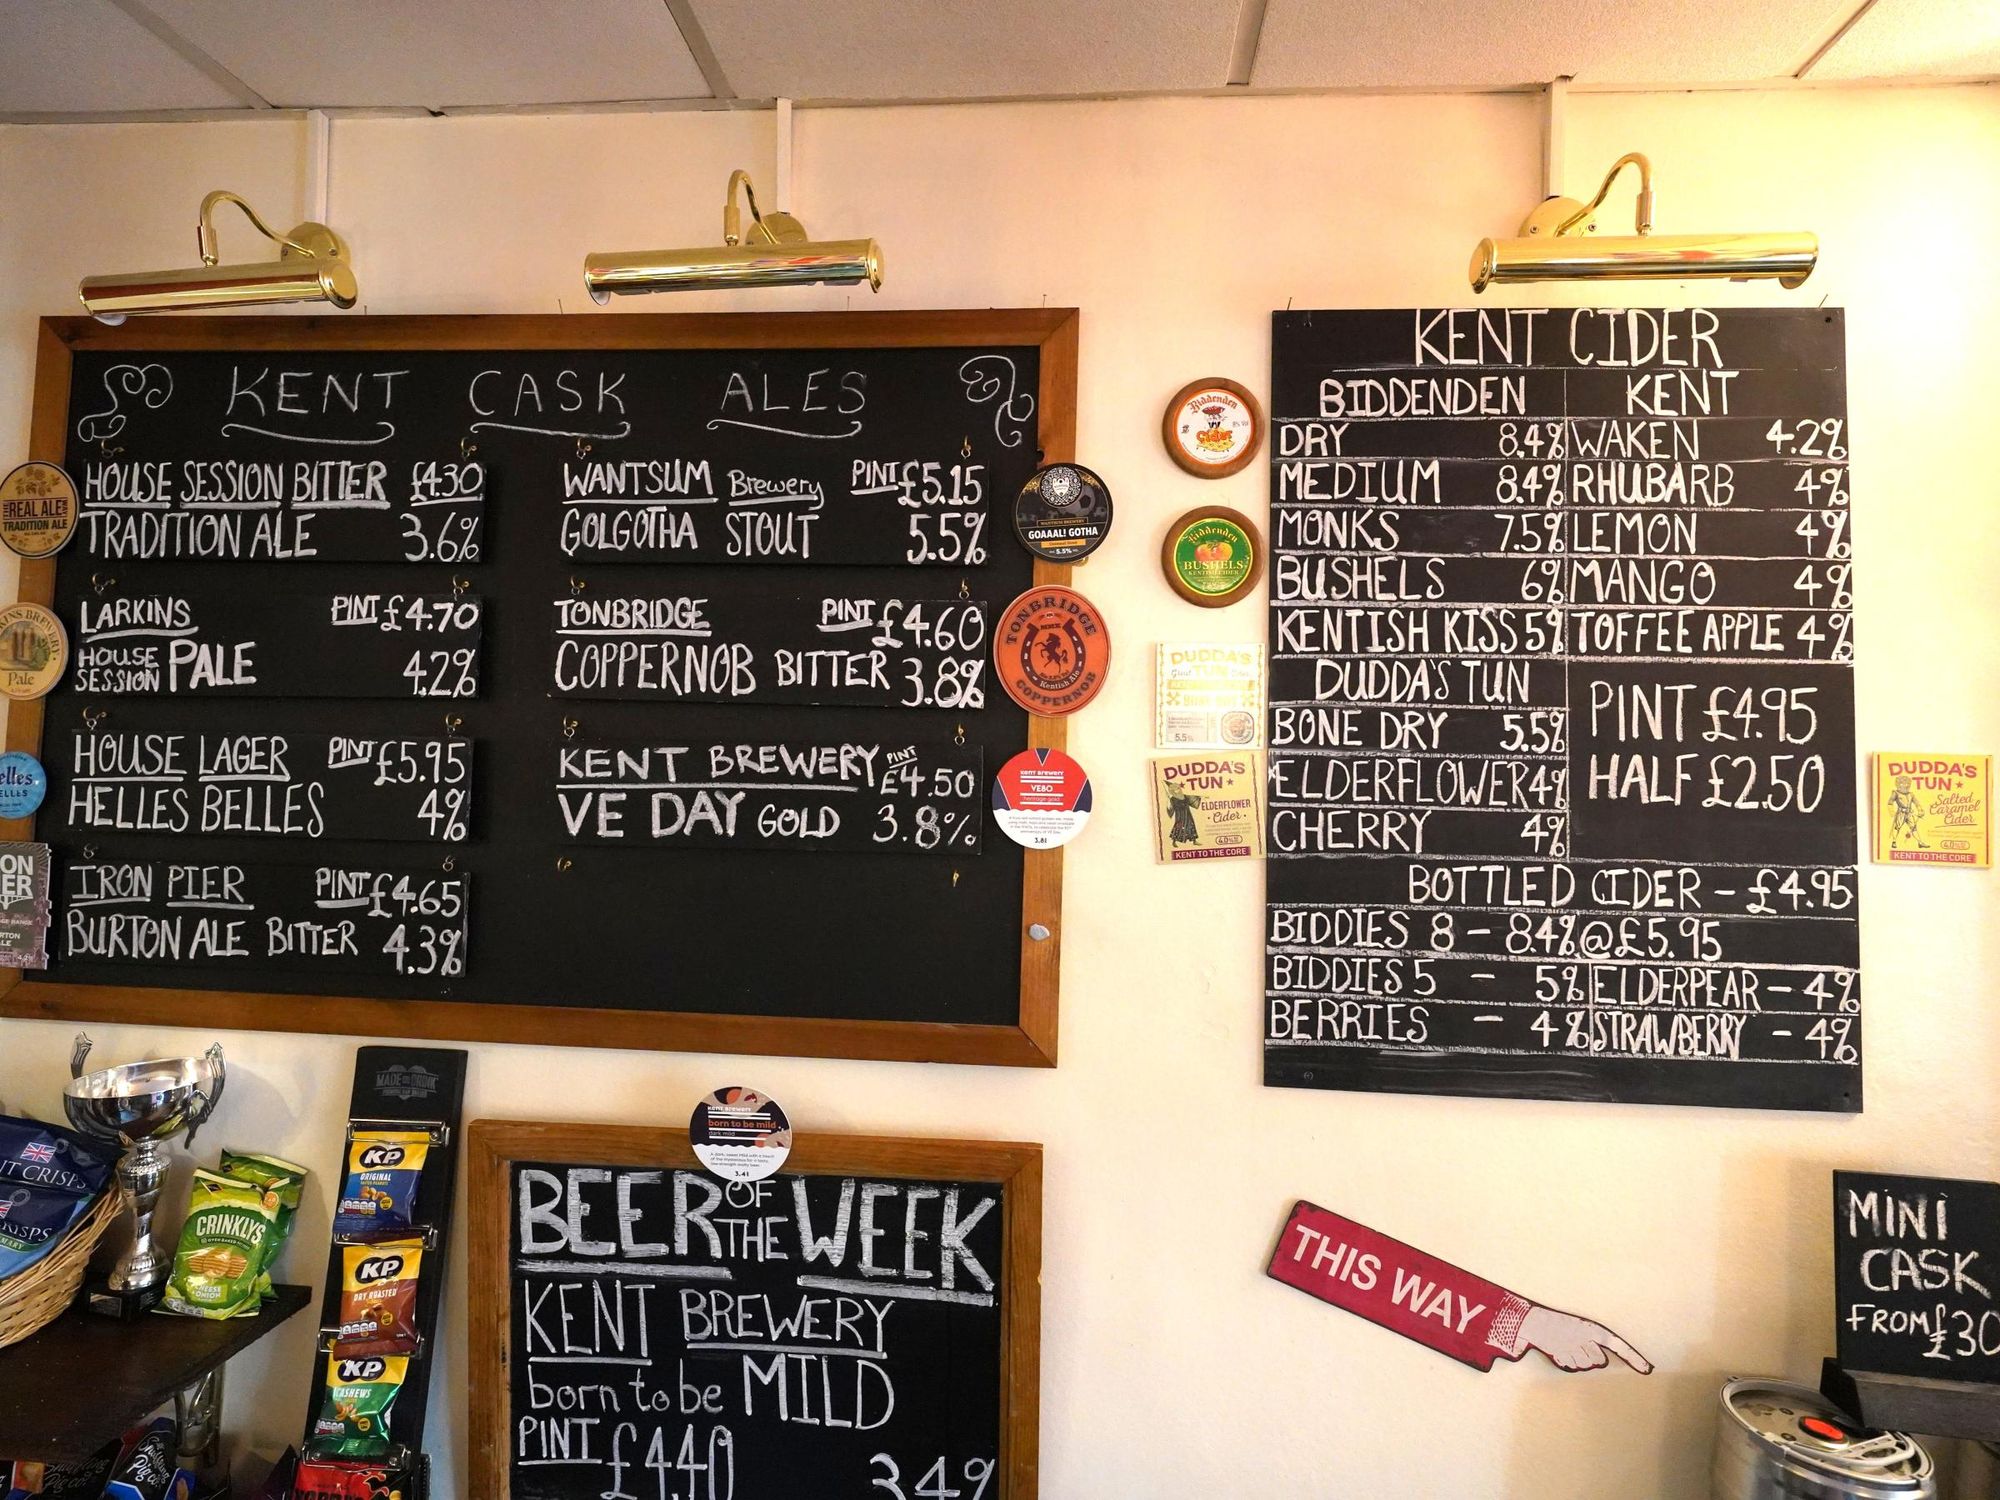 KENT CASK ALES
HOUSE SESSION BITTER £4.30
TRADITION ALE 3.6%
LARKINS PINT £4.70
HOUSE SESSION PALE 4.2%
HOUSE LAGER PINT £5.95
HELLES BELLES 4%
IRON PIER PINT £4.65
BURTON ALE BITTER 4.3%
WANTSUM Brewery PINT £5.15
GOLGOTHA STOUT 5.5%
TONBRIDGE PINT £4.60
COPPERNOB BITTER 3.8%
KENT BREWERY PINT £4.50
VE DAY GOLD 3.8%
REAL ALE
TRADITION ALE
Pale
GOAAAL! GOTHA
5.5%
TONBRIDGE
Kentish Ale
COPPERNOB
KENT BREWERY
VE80
heritage gold
Biddenden
Cider
Biddenden
BUSHELS
DUDDA'S
TUN
5.5%
DUDDA'S
TUN
ELDERFLOWER
Cider
KENT TO THE CORE
KENT CIDER
BIDDENDEN KENT
DRY 8.4% WAKEN 4.2%
MEDIUM 8.4% RHUBARB 4%
MONKS 7.5% LEMON 4%
BUSHELS 6% MANGO 4%
KENTISH KISS 5% TOFFEE APPLE 4%
DUDDA'S TUN
BONE DRY 5.5%
ELDERFLOWER 4%
CHERRY 4%
PINT £4.95
HALF £2.50
BOTTLED CIDER - £4.95
BIDDIES 8 - 8.4% @ £5.95
BIDDIES 5 - 5% ELDERPEAR - 4%
BERRIES - 4% STRAWBERRY - 4%
DUDDA'S
TUN
Salted
Caramel
Cider
KENT TO THE CORE
MADE FOR DRINK
KP
ORIGINAL
KP
DRY ROASTED
KP
CASHEWS
CRISPS
CRINKLYS
CHEESE & ONION
KENT BREWERY
born to be mild
dark mild
BEER OF THE WEEK
KENT BREWERY
born to be MILD
PINT £4.40 3.4%
THIS WAY
MINI
CASK
FROM £30